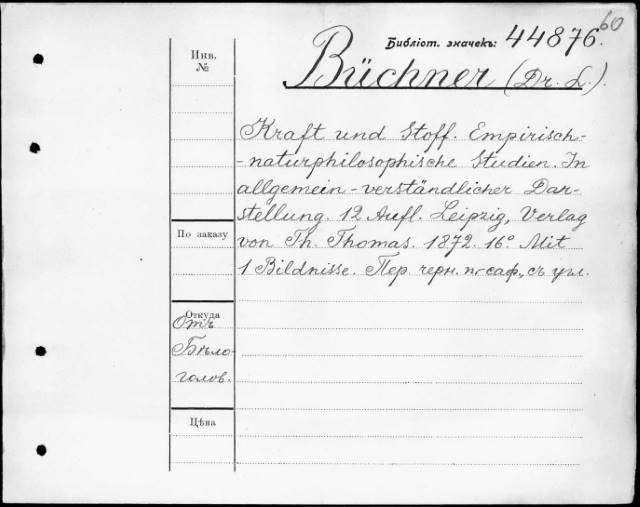 60
Библіот. значекъ: 44876.
Инв.
№
Büchner (Dr. L.).
Kraft und Stoff. Empirisch-
-naturphilosophische Studien. In
allgemein-verständlicher Dar-
stellung. 12 Aufl. Leipzig, Verlag
von Th. Thomas. 1872. 16° Mit
1 Bildnisse. Пер. черн. п/саф., съ угл.
По заказу
Откуда
Отъ
Бѣло-
голов.
Цѣна